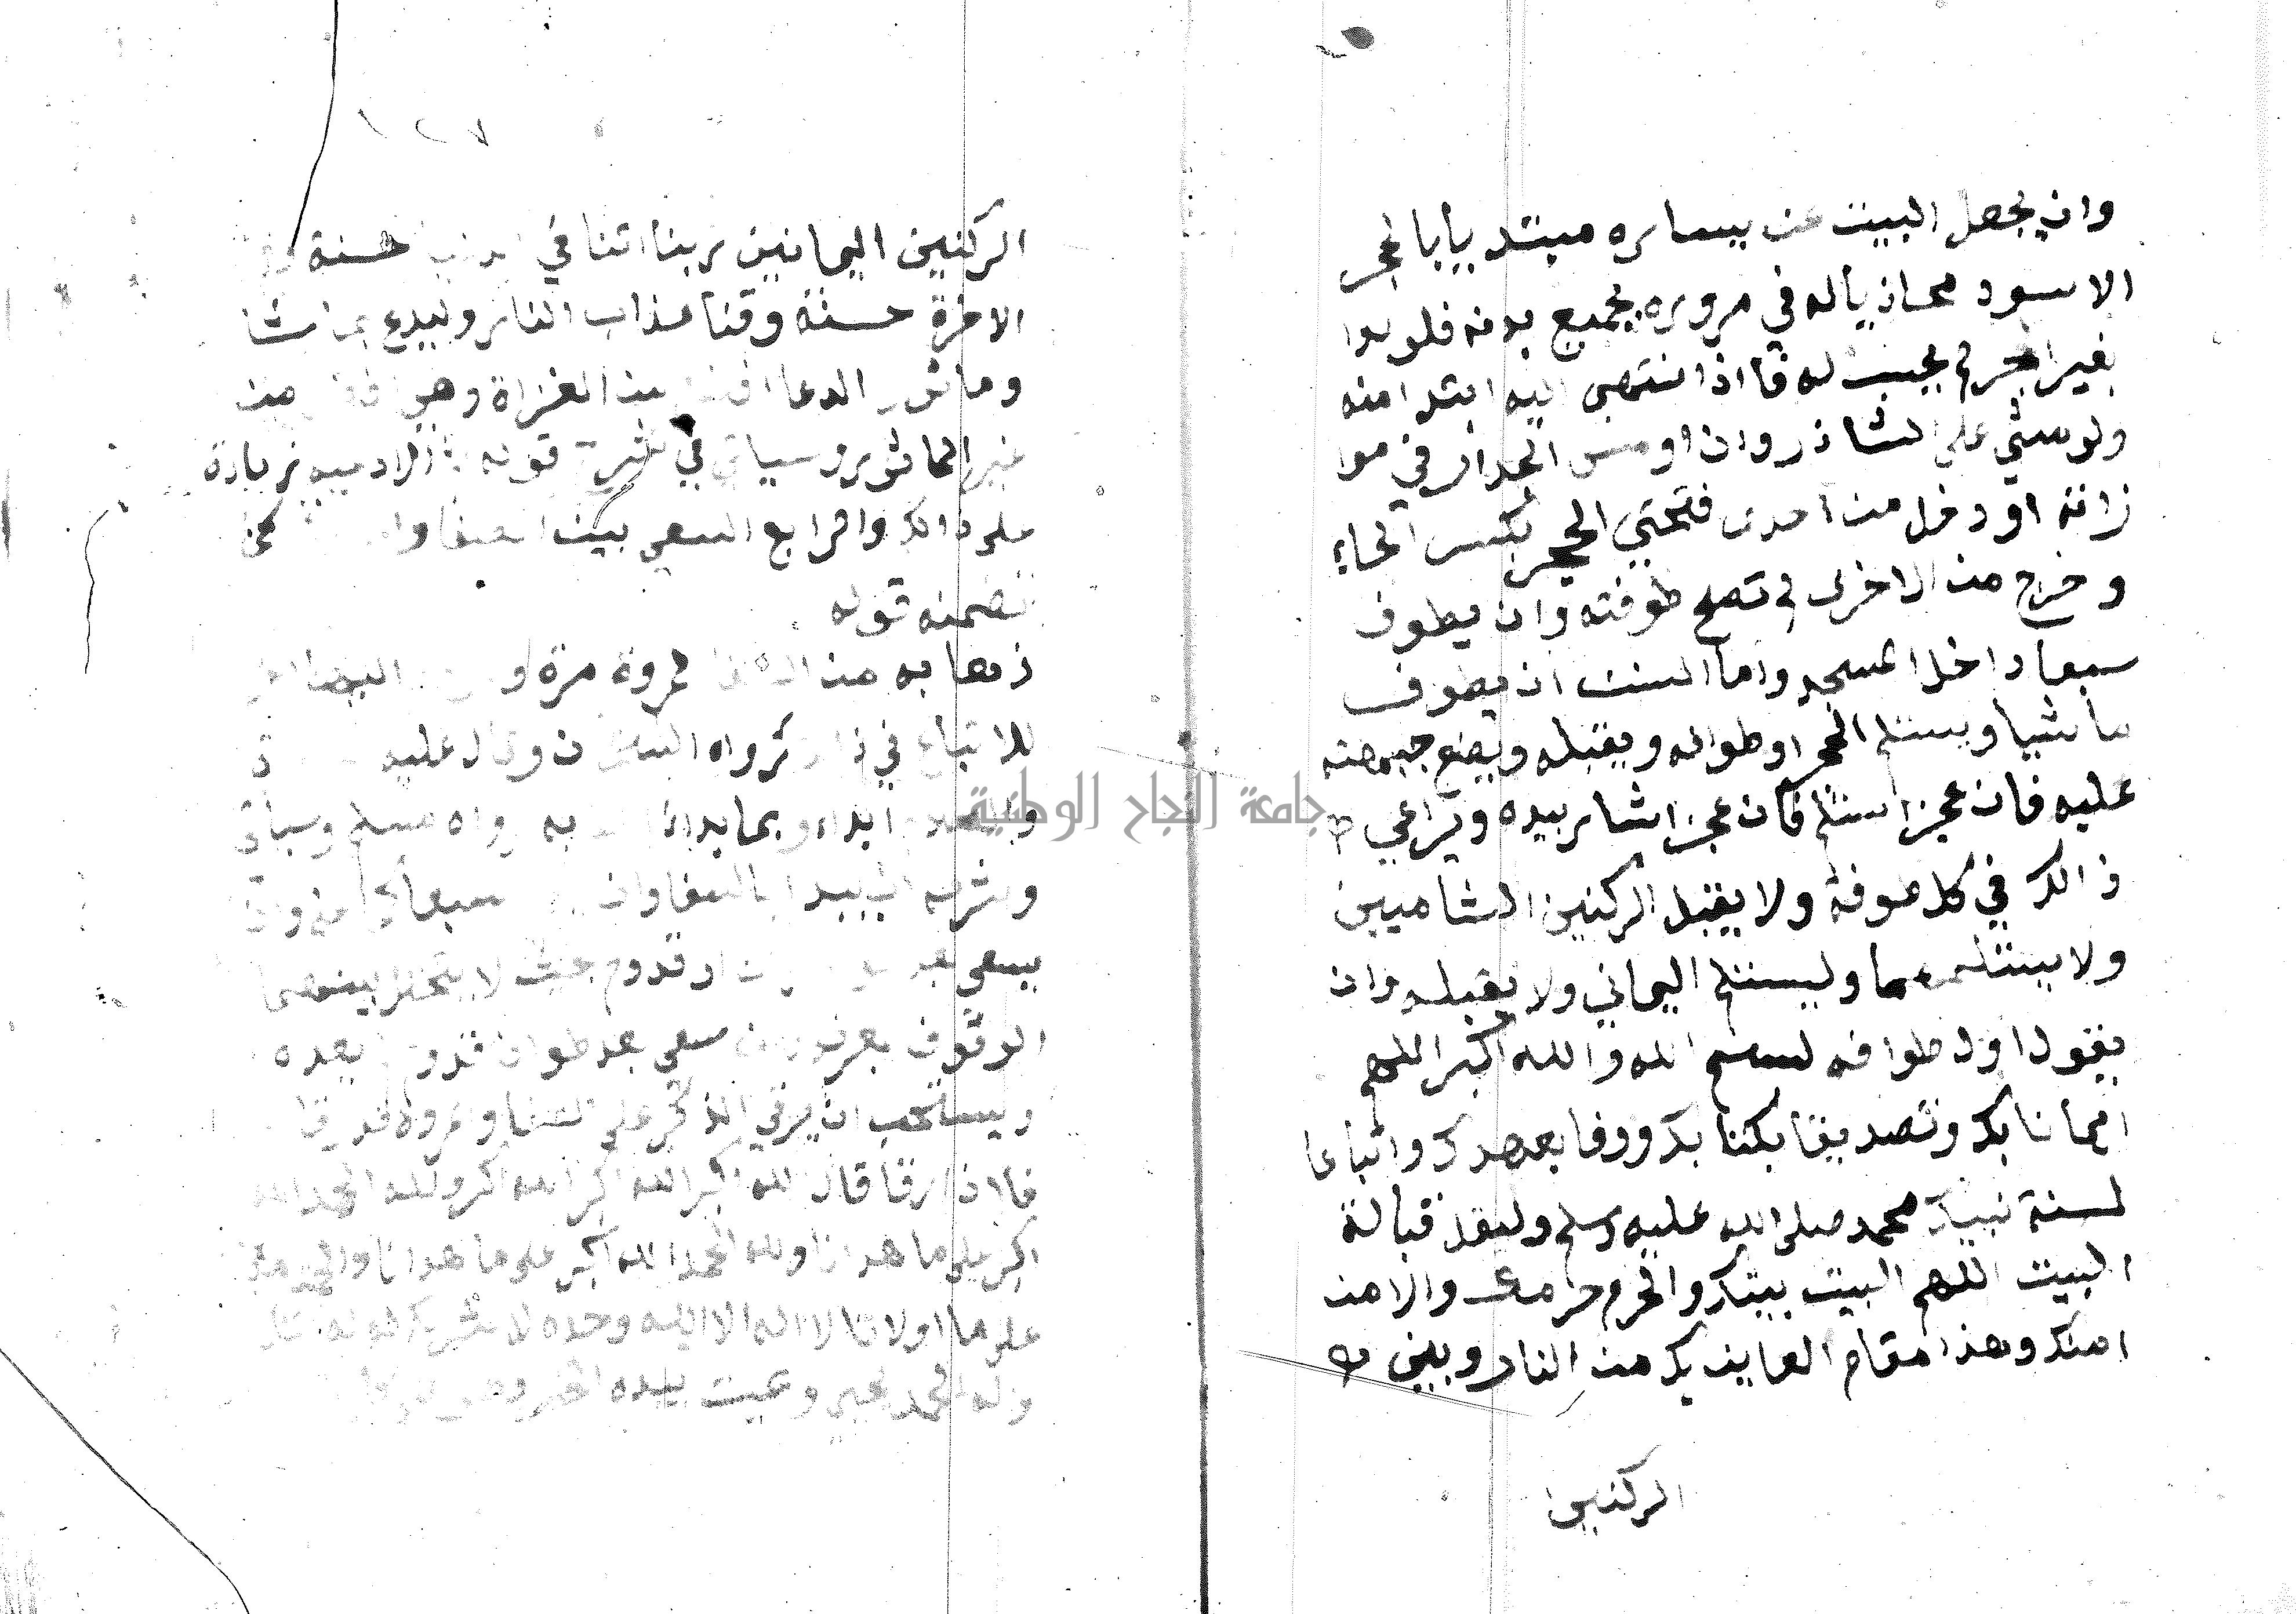 وان يجعل البيت عن يساره مبتديأ بالحجر
الاسود محاذيأ له في مروره بجميع بدنه فلو بدا
بغير الحجر لم يحسب له فاذا انتهى اليه ابتدا منه
ولو مشي على الشاذروان او مس الجدار في موا
زانه او دخل من احدى فتحتي الحجر بكسر الحاء
وخرج من الاخرى لم تصح طوفته وان يطوف
سبعا داخل المسجد واما السنن ان يطوف
ماشيا ويستلم الحجر او طوافه ويقبله ويضع جبهته
عليه فان عجز استلم فان عجز اشار بيده ويراعي
ذالك في كل طوفة ولا يقبل الركنين الشاميين
ولا يستلمهما ويستلم اليماني ولا يقبله وان
يقول اول طوافه بسم الله والله اكبر اللهم
ايمانا بك وتصديقا بكتابك ووفا بعهدك واتباعا
لسنة نبيك محمد صلى الله عليه وسلم وليقل قبالة
البيت اللهم البيت بيتك والحرم حرمك والامن
امنك وهذا مقام العايذ بك من النار وبين
الركنين
١٢٧
الركنين اليمانيين ربنا اتنا في الدنيا حسنة وفي
الاخرة حسنة وقنا عذاب النار وليدع بما شا
وماثور الدعا افضل من القراة وهي افضل من
غير الماثور وسياتي في شرح قوله الادعيه زيادة
على ذالك والرابع السعي بين الصفا وا
تضمنه قوله
ذهابه من الصفا لمروة مرة و
للاتباع في ذا رواه الشيخان وقال عليه
ابداو بما بدا الله به رواه مسلم وسياتي
وشرطه ان يبدا بالصفا وان سبعا
يسعى بعد او قدوم بحيث لا يتخلل بينهما
الوقوف بعرفه سعى بعد طواف قدوم بعده
ويستحب ان يرقي الذكر على الصفا والمروة قدر قا
فاذا رقا قال الله اكبر الله اكبر الله اكبر ولله الحمد الله
اكبر على ما هدانا ولله الحمد الله اكبر على ما هدانا والحمد لله
على ما اولانا لا اله الا الله وحده لا شريك له له
وله الحمد يحيي ويميت بيده الخير وهو
جامعة النجاح الوطنية